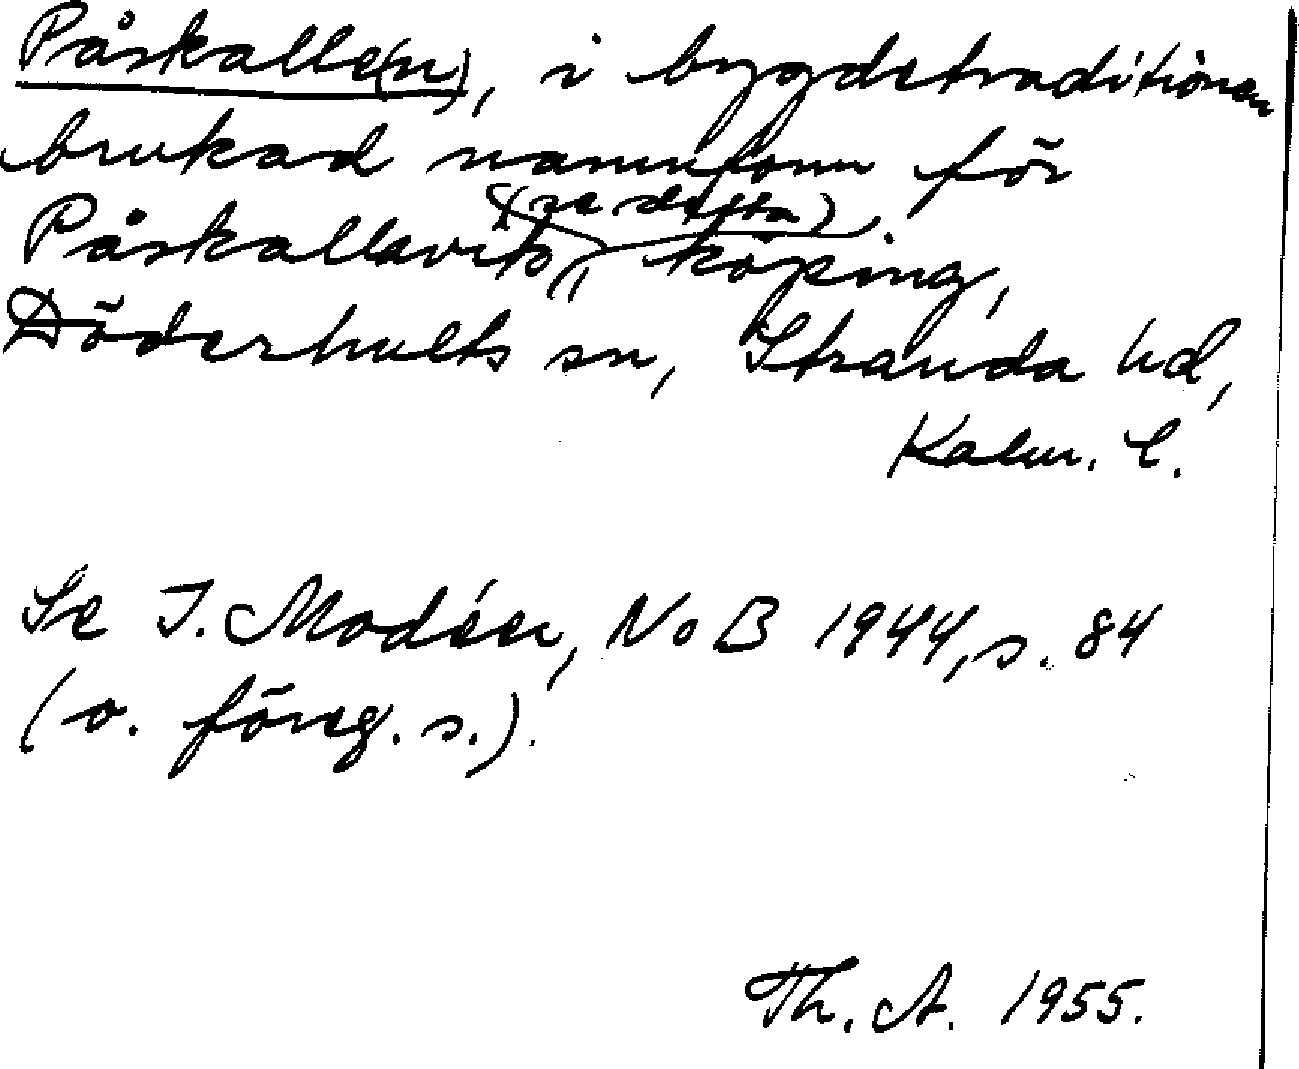 Påskalle(n), i bygdetraditionen
brukad namnform för
(se detta)
Påskallavik, köping,
Döderhults sn, Stranda hd,
Kalm. l.
Se I. Modéer, NoB 1944, s. 84
(o. föreg. s.).
Th. A. 1955.